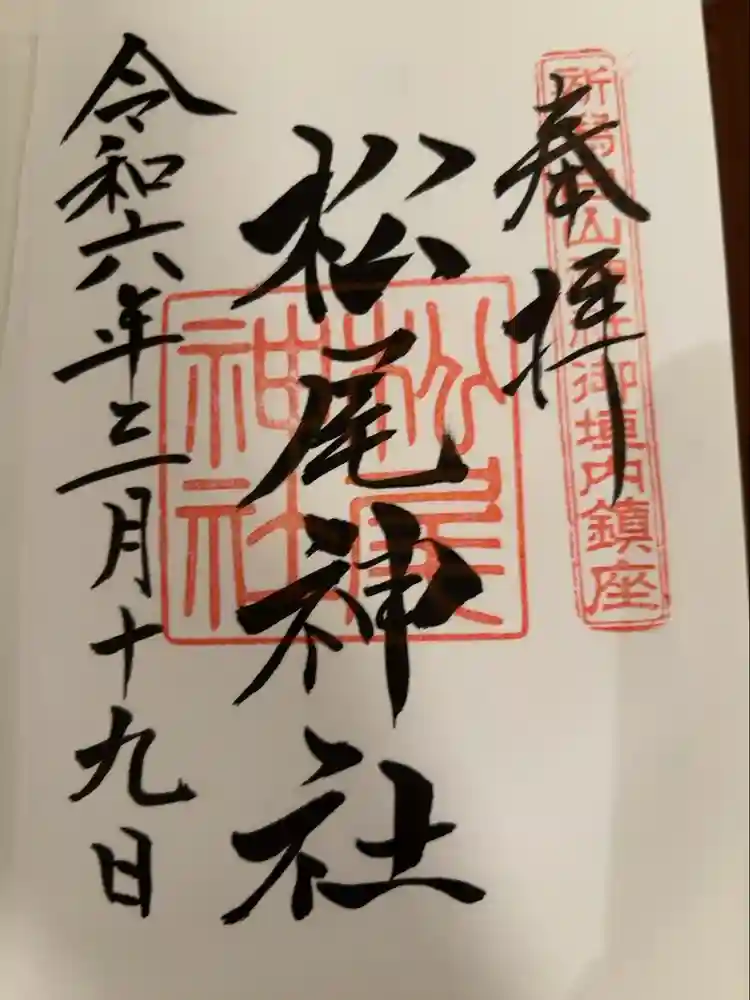 奉拝
山
御垣内鎮座
松尾神社
松尾神社
令和六年三月十九日